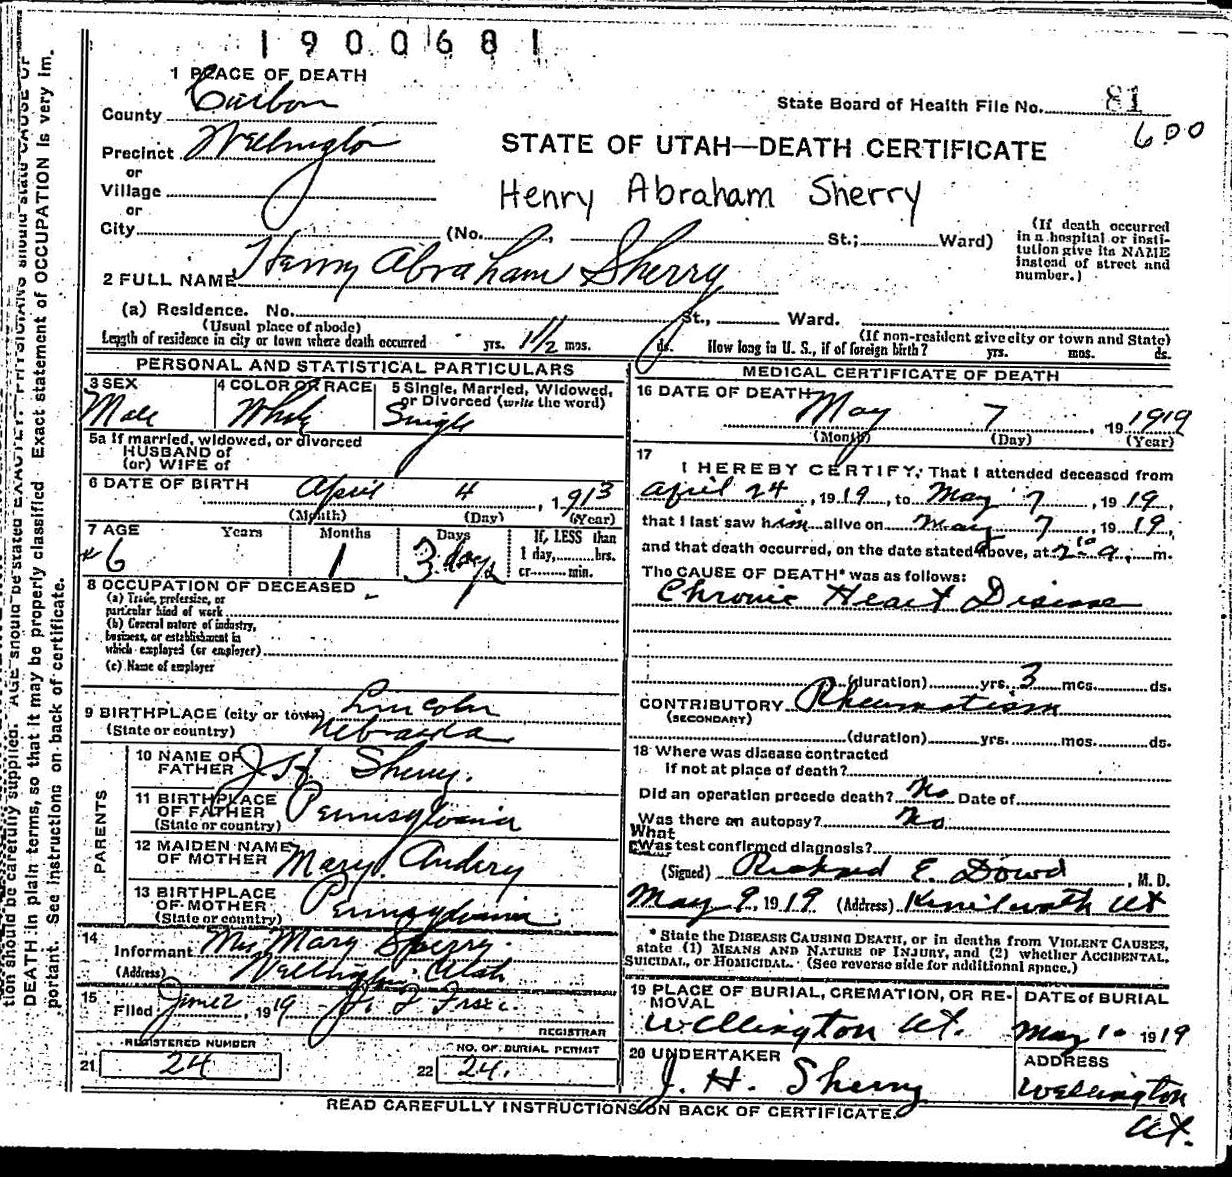 1900681
1 PLACE OF DEATH
County Carbon
State Board of Health File No. 81
600
Precinct Wellington
STATE OF UTAH—DEATH CERTIFICATE
or
Village
Henry Abraham Sherry
or
City (No. St.; Ward)
(If death occurred in a hospital or institution give its NAME instead of street and number.)
2 FULL NAME Henry Abraham Sherry
(a) Residence. No. St., Ward.
(Usual place of abode) (If non-resident give city or town and State)
Length of residence in city or town where death occurred yrs. 1 1/2 mos. ds. How long in U. S., if of foreign birth? yrs. mos. ds.
PERSONAL AND STATISTICAL PARTICULARS
3 SEX Male
4 COLOR OR RACE White
5 Single, Married, Widowed, or Divorced (write the word) Single
5a If married, widowed, or divorced
HUSBAND of
(or) WIFE of
6 DATE OF BIRTH April 4, 1913
(Month) (Day) (Year)
7 AGE Years Months Days If, LESS than
6 1 3 days 1 day, hrs.
or min.
8 OCCUPATION OF DECEASED -
(a) Trade, profession, or
particular kind of work
(b) General nature of industry,
business, or establishment in
which employed (or employer)
(c) Name of employer
9 BIRTHPLACE (city or town) Lincoln
(State or country) Nebraska
PARENTS
10 NAME OF FATHER J H Sherry.
11 BIRTHPLACE OF FATHER Pennsylvania
(State or country)
12 MAIDEN NAME OF MOTHER Mary
13 BIRTHPLACE OF MOTHER Pennsylvania
(State or country)
14
Informant Mrs Mary Sherry.
(Address) Wellington Utah
15
Filed June 2, 1919
REGISTRAR
21 REGISTERED NUMBER 24
22 NO. OF BURIAL PERMIT 24.
MEDICAL CERTIFICATE OF DEATH
16 DATE OF DEATH May 7, 19 1919
(Month) (Day) (Year)
17
I HEREBY CERTIFY, That I attended deceased from
April 24, 1919, to May 7, 1919,
that I last saw him alive on May 7, 1919,
and that death occurred, on the date stated above, at 2 10 a. m.
The CAUSE OF DEATH* was as follows:
Chronic Heart Disease
(duration) yrs. 3 mos. ds.
CONTRIBUTORY Rheumatism
(SECONDARY)
(duration) yrs. mos. ds.
18 Where was disease contracted
if not at place of death?
Did an operation precede death? No Date of
Was there an autopsy? No
What
Was test confirmed diagnosis?
(Signed) Richard E. Dowd, M. D.
May 9, 1919 (Address) Kenilworth Ut
* State the DISEASE CAUSING DEATH, or in deaths from VIOLENT CAUSES,
state (1) MEANS AND NATURE OF INJURY, and (2) whether ACCIDENTAL,
SUICIDAL, or HOMICIDAL. (See reverse side for additional space.)
19 PLACE OF BURIAL, CREMATION, OR REMOVAL
Wellington Ut.
DATE of BURIAL
May 10 1919
20 UNDERTAKER
J. H. Sherry
ADDRESS
Wellington
Ut.
READ CAREFULLY INSTRUCTIONS ON BACK OF CERTIFICATE.
tion should be carefully supplied. AGE should be stated EXACTLY. PHYSICIANS should state CAUSE OF
DEATH in plain terms, so that it may be properly classified. Exact statement of OCCUPATION is very im-
portant. See instructions on back of certificate.